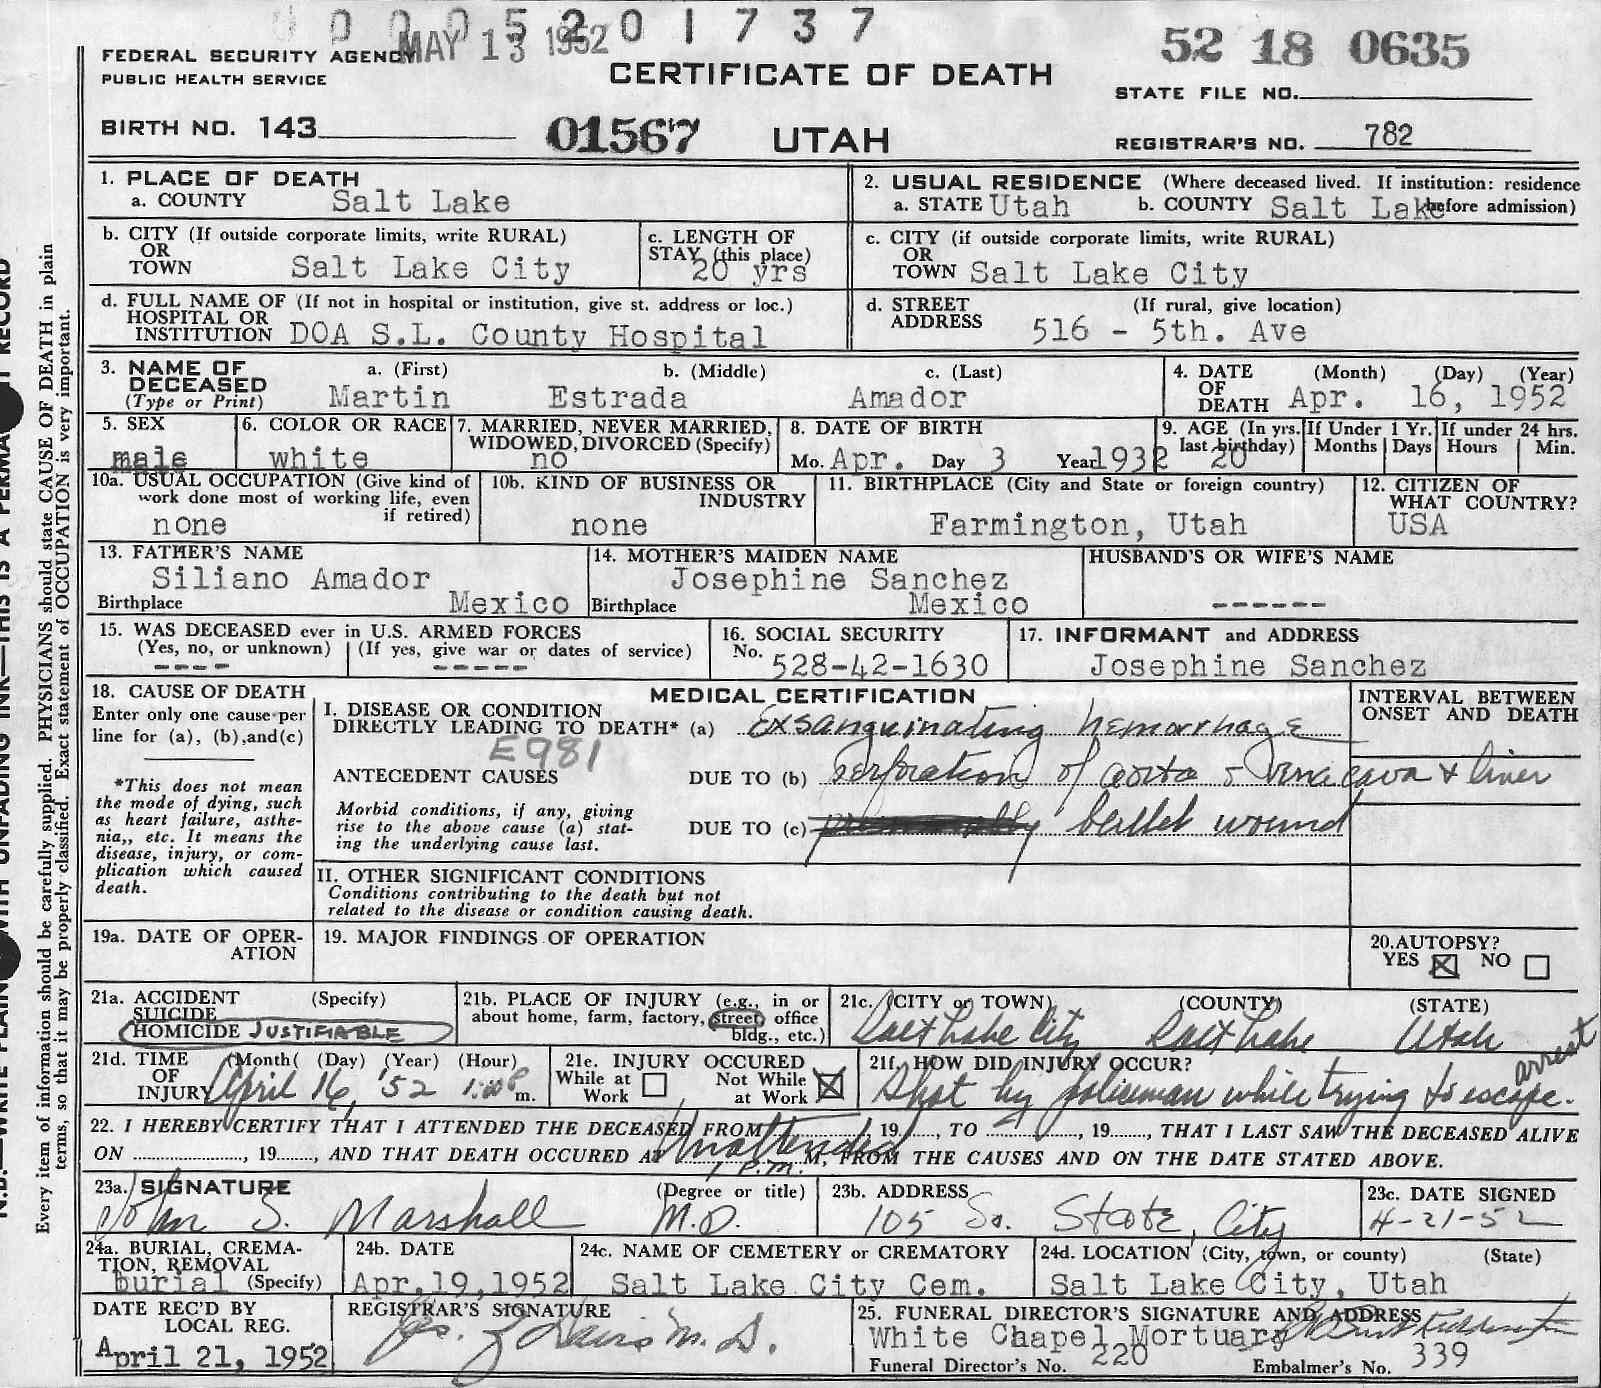 0 0 0 5 2 0 1 7 3 7
MAY 13 1952
52 18 0635
FEDERAL SECURITY AGENCY
PUBLIC HEALTH SERVICE
CERTIFICATE OF DEATH
STATE FILE NO.
BIRTH NO. 143
01567
UTAH
REGISTRAR'S NO. 782
1. PLACE OF DEATH
a. COUNTY Salt Lake
2. USUAL RESIDENCE (Where deceased lived. If institution: residence before admission)
a. STATE Utah b. COUNTY Salt Lake
b. CITY (If outside corporate limits, write RURAL)
OR
TOWN Salt Lake City
c. LENGTH OF
STAY (this place)
20 yrs
c. CITY (if outside corporate limits, write RURAL)
OR
TOWN Salt Lake City
d. FULL NAME OF (If not in hospital or institution, give st. address or loc.)
HOSPITAL OR
INSTITUTION DOA S.L. County Hospital
d. STREET (If rural, give location)
ADDRESS 516 - 5th. Ave
3. NAME OF
DECEASED
(Type or Print)
a. (First) b. (Middle) c. (Last)
Martin Estrada Amador
4. DATE (Month) (Day) (Year)
OF
DEATH Apr. 16, 1952
5. SEX
male
6. COLOR OR RACE
white
7. MARRIED, NEVER MARRIED,
WIDOWED, DIVORCED (Specify)
no
8. DATE OF BIRTH
Mo. Apr. Day 3 Year 1932
9. AGE (In yrs.
last birthday)
20
If Under 1 Yr.
Months Days
If under 24 hrs.
Hours Min.
10a. USUAL OCCUPATION (Give kind of
work done most of working life, even
if retired)
none
10b. KIND OF BUSINESS OR
INDUSTRY
none
11. BIRTHPLACE (City and State or foreign country)
Farmington, Utah
12. CITIZEN OF
WHAT COUNTRY?
USA
13. FATHER'S NAME
Siliano Amador
Birthplace Mexico
14. MOTHER'S MAIDEN NAME
Josephine Sanchez
Birthplace Mexico
HUSBAND'S OR WIFE'S NAME
------
15. WAS DECEASED ever in U.S. ARMED FORCES
(Yes, no, or unknown) (If yes, give war or dates of service)
---- -----
16. SOCIAL SECURITY
No. 528-42-1630
17. INFORMANT and ADDRESS
Josephine Sanchez
18. CAUSE OF DEATH
Enter only one cause per
line for (a), (b),and(c)
*This does not mean
the mode of dying, such
as heart failure, asthe-
nia,, etc. It means the
disease, injury, or com-
plication which caused
death.
MEDICAL CERTIFICATION
I. DISEASE OR CONDITION
DIRECTLY LEADING TO DEATH* (a) Exsanguinating hemorrhage
E981
ANTECEDENT CAUSES
DUE TO (b) perforation of aorta & vena cava & liver
Morbid conditions, if any, giving
rise to the above cause (a) stat-
ing the underlying cause last.
DUE TO (c) bullet wound
INTERVAL BETWEEN
ONSET AND DEATH
II. OTHER SIGNIFICANT CONDITIONS
Conditions contributing to the death but not
related to the disease or condition causing death.
19a. DATE OF OPER-
ATION
19. MAJOR FINDINGS OF OPERATION
20. AUTOPSY?
YES NO
21a. ACCIDENT (Specify)
SUICIDE
HOMICIDE JUSTIFIABLE
21b. PLACE OF INJURY (e.g., in or
about home, farm, factory, street, office
bldg., etc.)
21c. (CITY or TOWN) (COUNTY) (STATE)
Salt Lake City Salt Lake Utah
21d. TIME (Month( (Day) (Year) (Hour)
OF
INJURY April 16, '52 1:00 P m.
21e. INJURY OCCURED
While at
Work
Not While
at Work
21f. HOW DID INJURY OCCUR?
Shot by policeman while trying to escape arrest.
22. I HEREBY CERTIFY THAT I ATTENDED THE DECEASED FROM Unattended 19......, TO ..............., 19......, THAT I LAST SAW THE DECEASED ALIVE
ON ..............., 19......, AND THAT DEATH OCCURED AT 1 P.M. M, FROM THE CAUSES AND ON THE DATE STATED ABOVE.
23a. SIGNATURE (Degree or title)
John S. Marshall M.D.
23b. ADDRESS
105 So. State, City
23c. DATE SIGNED
4-21-52
24a. BURIAL, CREMA-
TION, REMOVAL
burial (Specify)
24b. DATE
Apr,19,1952
24c. NAME OF CEMETERY or CREMATORY
Salt Lake City Cem.
24d. LOCATION (City, town, or county) (State)
Salt Lake City, Utah
DATE REC'D BY
LOCAL REG.
April 21, 1952
REGISTRAR'S SIGNATURE
M.D.
25. FUNERAL DIRECTOR'S SIGNATURE AND ADDRESS
White Chapel Mortuary
Funeral Director's No. 220 Embalmer's No. 339
Every item of information should be carefully supplied. PHYSICIANS should state CAUSE OF DEATH in plain
terms, so that it may be properly classified. Exact statement of OCCUPATION is very important.